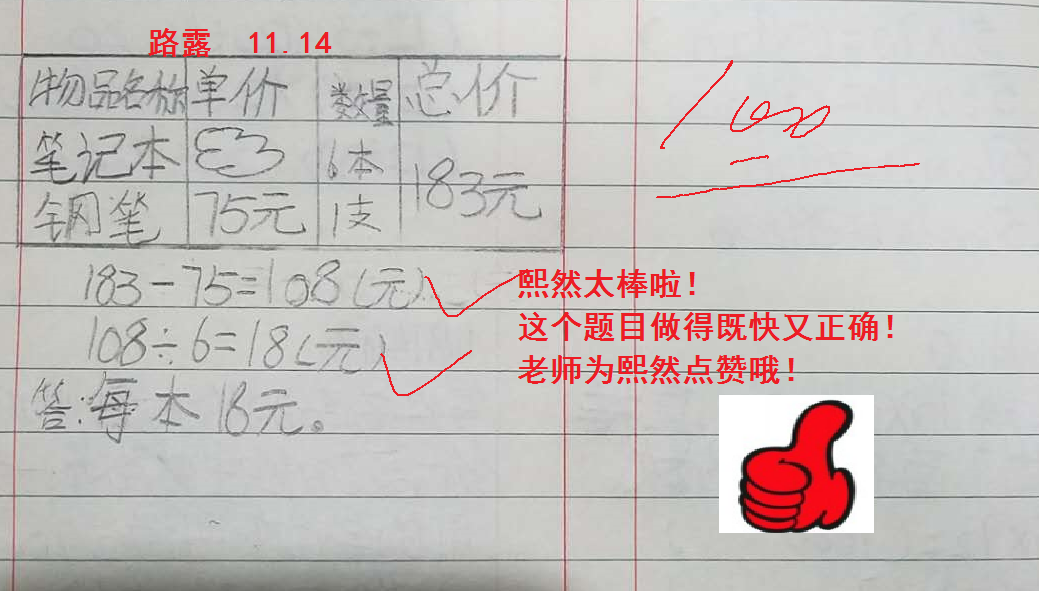 路露 11.14
物品名称 单价 数量 总价
笔记本 6本
183元
钢笔 75元 1支
183-75=108(元)
108÷6=18(元)
答:每本18元。
100
熙然太棒啦!
这个题目做得既快又正确!
老师为熙然点赞哦!